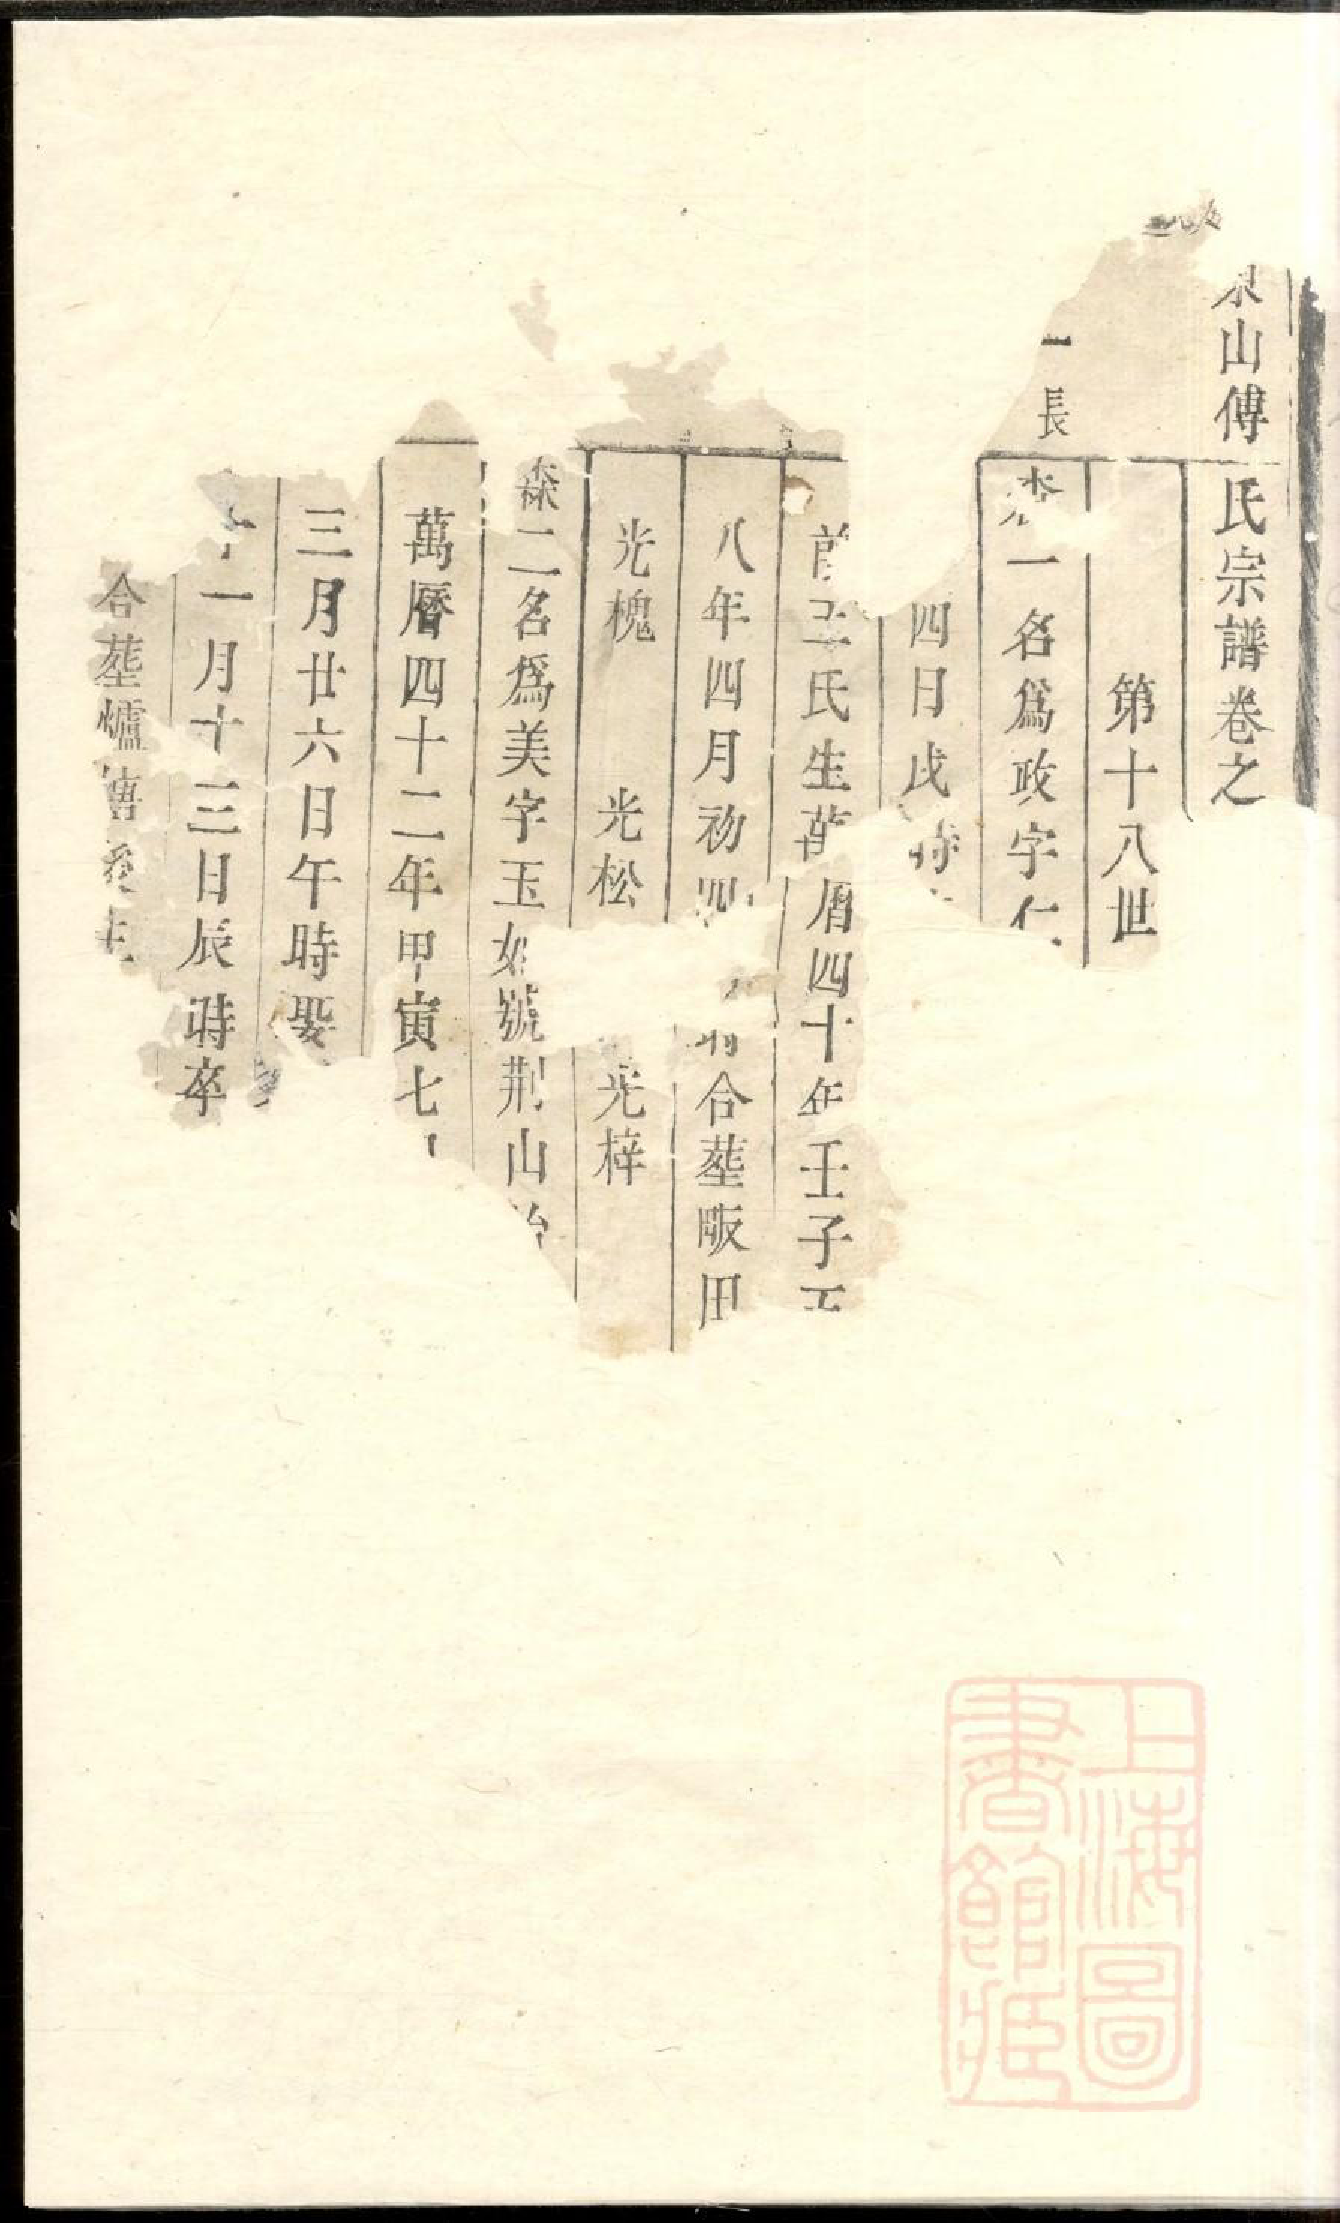 山傅氏宗譜卷之
第十八世
一長
一名爲政字仁
四日戌時
王氏生萬曆四十年壬子
八年四月初四 合塟畈田
光槐 光松 光梓
森二名爲美字玉如號荆山
萬曆四十二年甲寅七
三月廿六日午時娶
十一月十三日辰時卒
合塟爐
上海圖書館藏